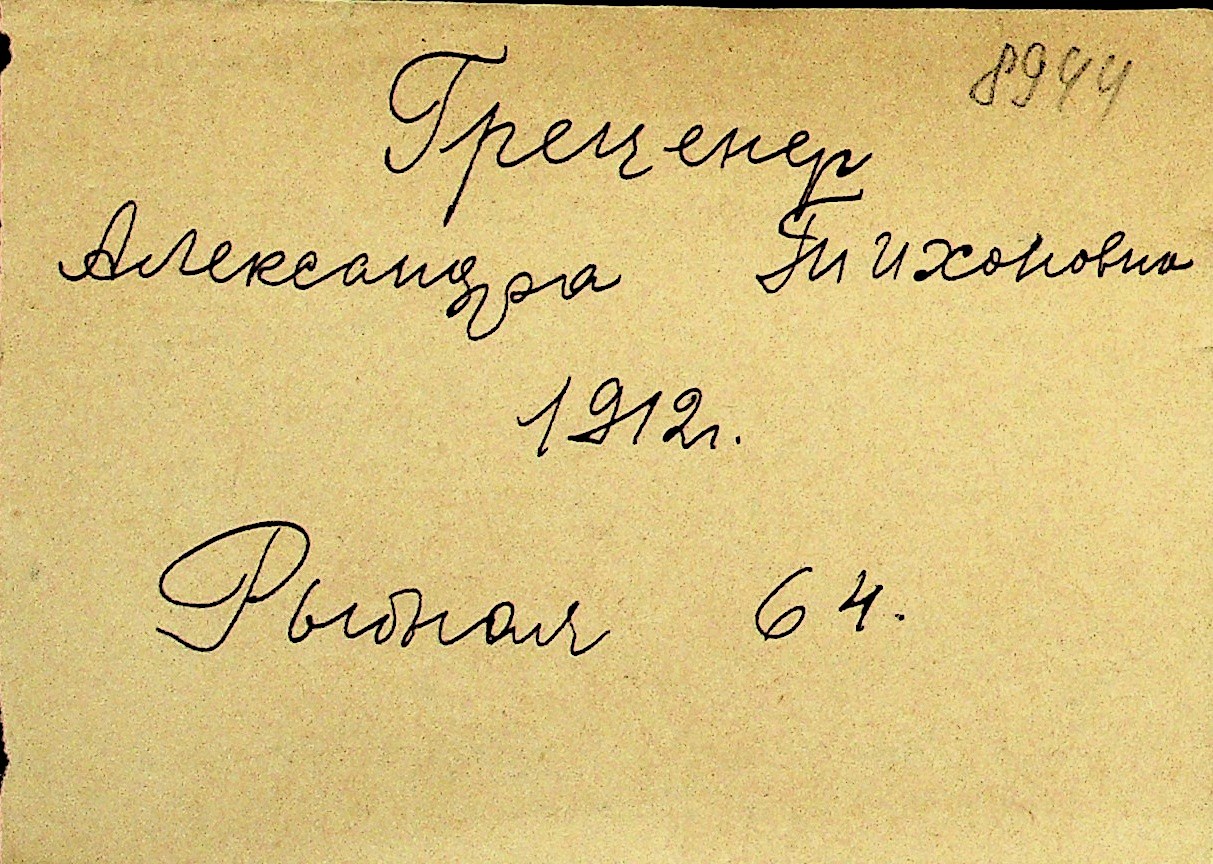 8944
Греценер
Александра Тихоновна
1912г.
Рыбная 64.